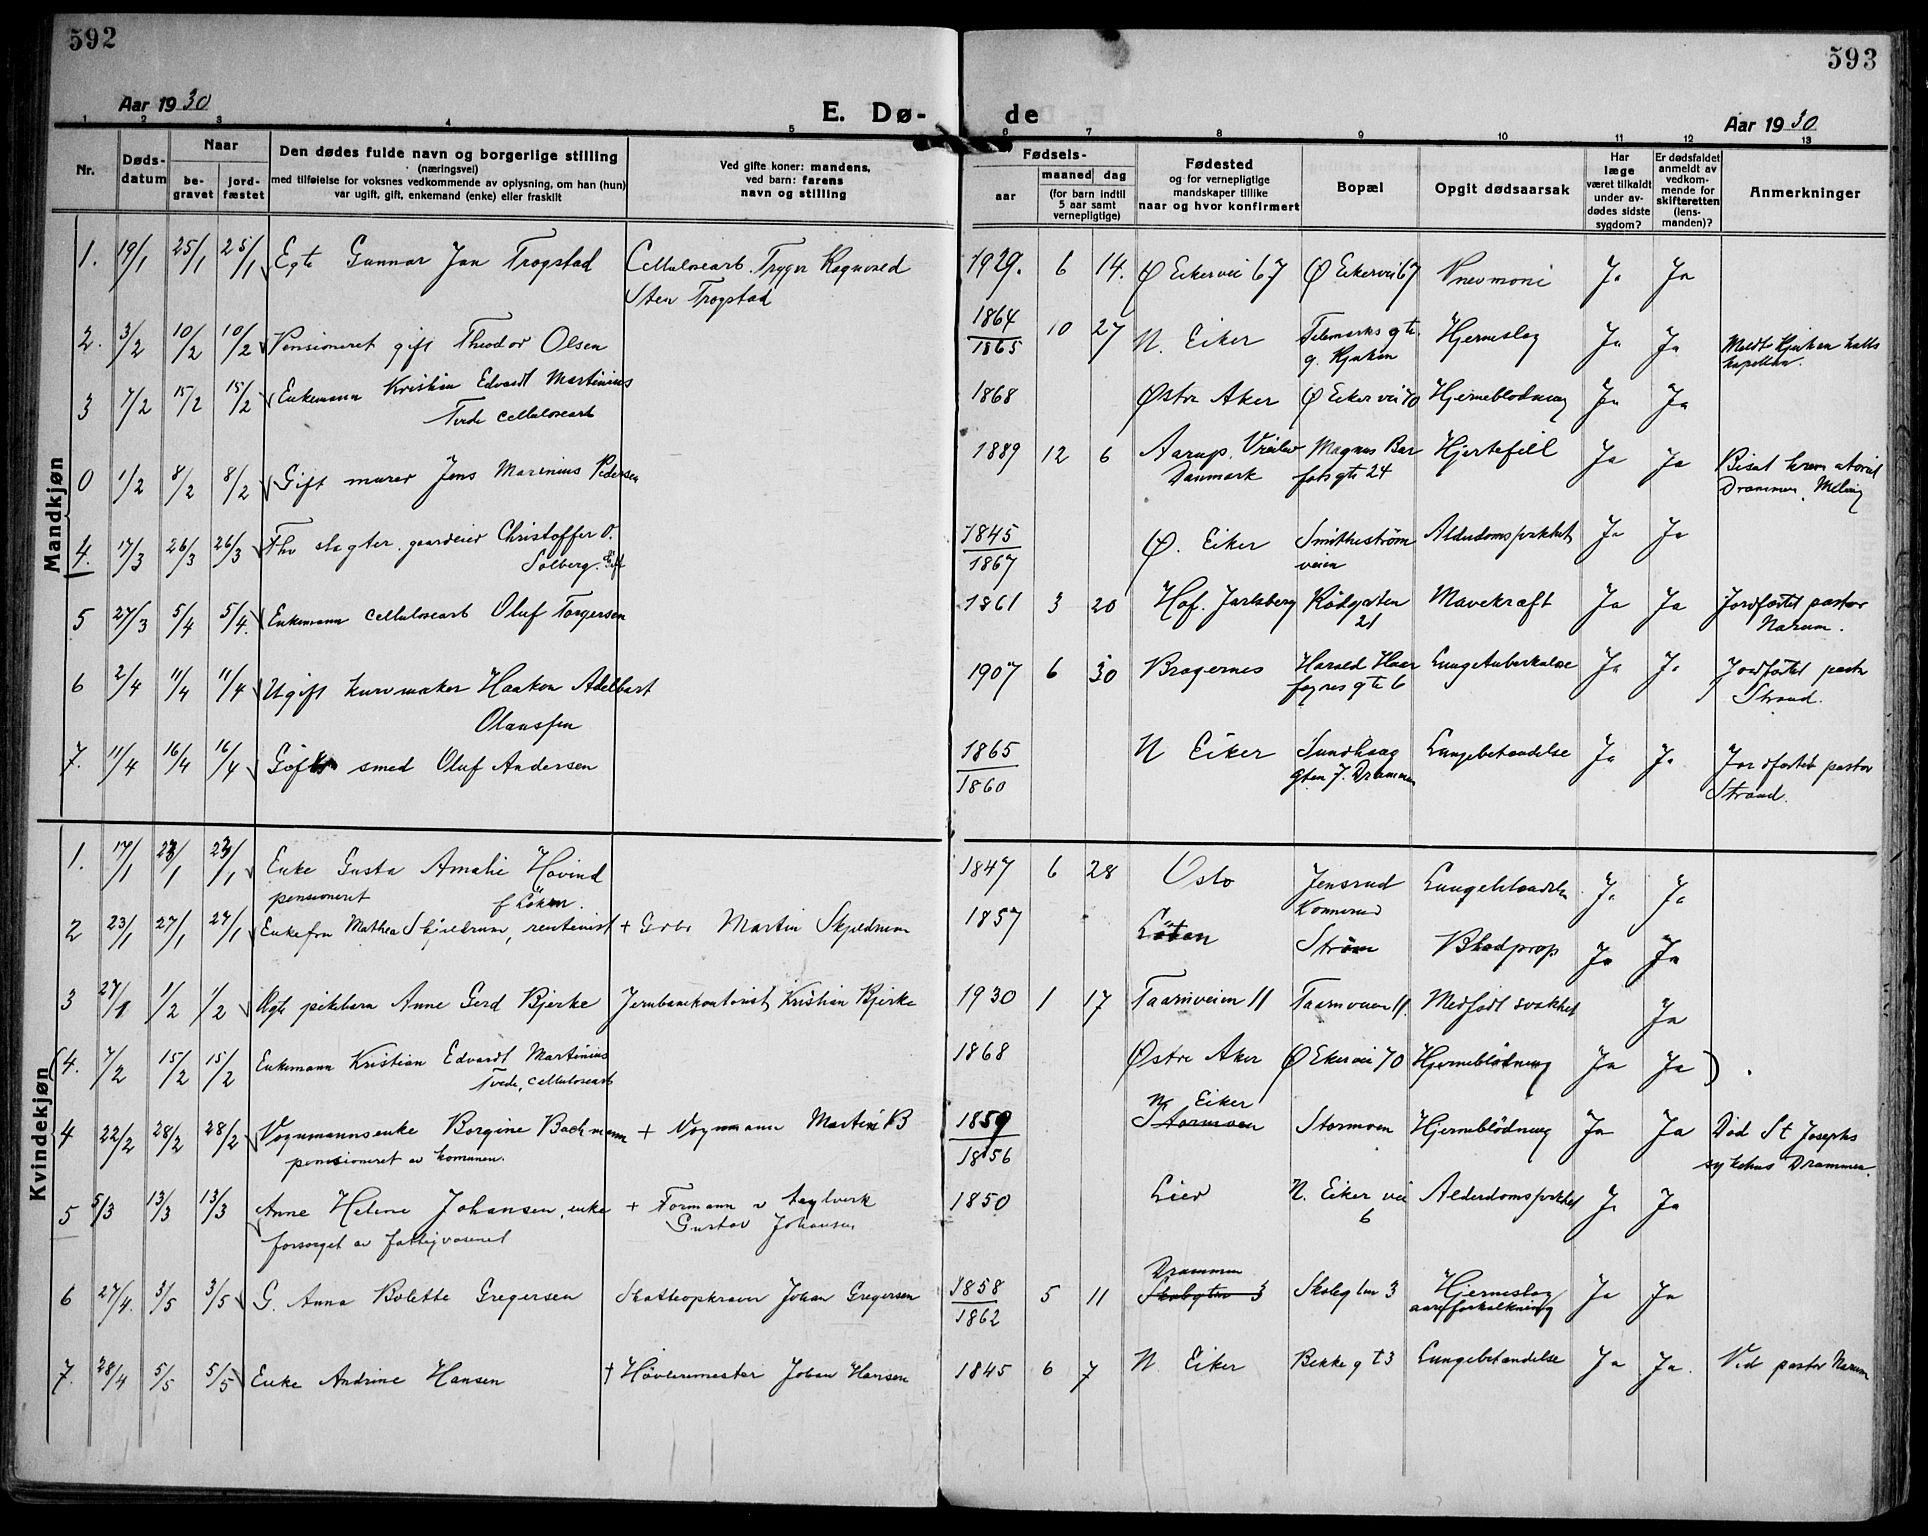 592
593
Aar 1930
E. Dø-
de
Aar 1930
1 2 3 4 5 6 7 8 9 10 11 12 13
Nr.
Døds-
datum
Naar
be-
gravet
jord-
fæstet
Den dødes fulde navn og borgerlige stilling
(næringsvei)
med tilføielse for voksnes vedkommende av oplysning, om han (hun)
var ugift, gift, enkemand (enke) eller fraskilt
Ved gifte koner: mandens,
ved barn: farens
navn og stilling
Fødsels-
aar
maaned dag
(for barn indtil
5 aar samt
vernepligtige)
Fødested
og for vernepligtige
mandskaper tillike
naar og hvor konfirmert
Bopæl
Opgit dødsaarsak
Har
læge
været tilkaldt
under av-
dødes sidste
sygdom?
Er dødsfaldet
anmeldt av
vedkom-
mende for
skifteretten
(lens-
manden)?
Anmerkninger
Mandkjøn
1. 19/1 25/1 25/1 Egte Gunnar Jan Trogstad Cellulosearb. Trygve Ragnvald 1929. 6 14. Ø Eikervei 67 Ø Eikervei 67 Pnevmoni Ja Ja
Sten Trogstad
2. 3/2 10/2 10/2 Pensioneret gift Theodor Olsen 1864 10 27 N. Eiker Telemarks gt. Hjerneslag Ja Ja Meldt Rjukan
1865 g. Rjukan kapellan.
3 7/2 15/2 15/2 Enkemann Kristian Edvardt Martinius 1868 Østre Aker Ø Eikervei 70 Hjerneblødning Ja Ja
Tvede cellulosearb
0 1/2 8/2 8/2 Gift murer Jens Marinius Pedersen 1889 12 6 Aarup, Magnus Bar Hjertefeil Ja Ja Bisat krematoriet
Danmark fots gt 24 Drammen,
4. 17/3 26/3 26/3 Fhv slagter, gaardeier Christoffer O. 1845 Ø. Eiker Smithestrøm Alderdomssvakhet Ja Ja
Solberg. Gift 1867 veien
5 27/3 5/4 5/4. Enkemann cellulosearb Oluf Torgersen 1861 3 20 Hof. Jarlsberg Rödgaten Mavekræft Ja Ja Jordfæstet pastor
21 Narum.
6 2/4 11/4 11/4 Ugift kurvmaker Haakon Adelbart 1907 6 30 Bragernes Harald Haar Lungetuberkulose Ja Ja Jordfæstet pastor
Olaussen fagres gt 6 Strand.
7. 11/4 16/4 16/4 Gift smed Oluf Andersen 1865 N Eiker Sundhaug Lungebetændelse Ja Ja Jordfæstet pastor
1860 gten 7. Drammen Strand.
Kvindekjøn
1. 17/1 23/1 23/1 Enke Gusta Amalie Hovind 1847 6 28 Oslo Jensrud Lungebetændelse Ja Ja
pensioneret f Löken. Konnerud
2 23/1 27/1 27/1 Enkefru Mathea Skjeldrum, rentenist + Grbr Martin Skjeldrum 1857 Löten Strøm Blodprop Ja Ja
3 27/1 1/2 1/2 Ægte pikebarn Anne Gerd Bjerke Jernbanekontorist Kristian Bjerke 1930 1 17 Taarnveien 11 Taarnveien 11. Medfødt svakhet Ja
(4. 7/2 15/2 15/2 Enkemann Kristian Edvardt Martinius 1868 Østre Aker Ø Ekervei 70 Hjerneblödning Ja Ja ) .
Tvede, cellulosearb
N Eiker
4 22/2 28/2 28/2 Vognmannsenke Borgine Bachmann + Vognmann Martin B 1859 Stormoen Stormoen Hjerneblödning Ja Ja Död St Josephs
pensioneret av komunen. 1856 sykehus Drammen
5 5/3 13/3 13/3 Anne Helene Johansen, enke + Formann v teglverk 1850 Lier N. Eiker vei Alderdomssvakhet Ja Ja
forsörget av fattigvæsenet Gustav Johansen 6
Drammen
6 27/4. 3/5 3/5 G. Anna Bolette Gregersen Skatteopkræver Johan Gregersen 1858 5 11 Skolegten 3 Skolegten 3 Hjerneslag Ja Ja
1862 aareforkalkning
7. 28/4 5/5 5/5 Enke Andrine Hansen + Høvlerimester Johan Hansen 1845 6 7 N Eiker Bekke gt 3 Lungebetændelse Ja Ja. Ved pastor Narum